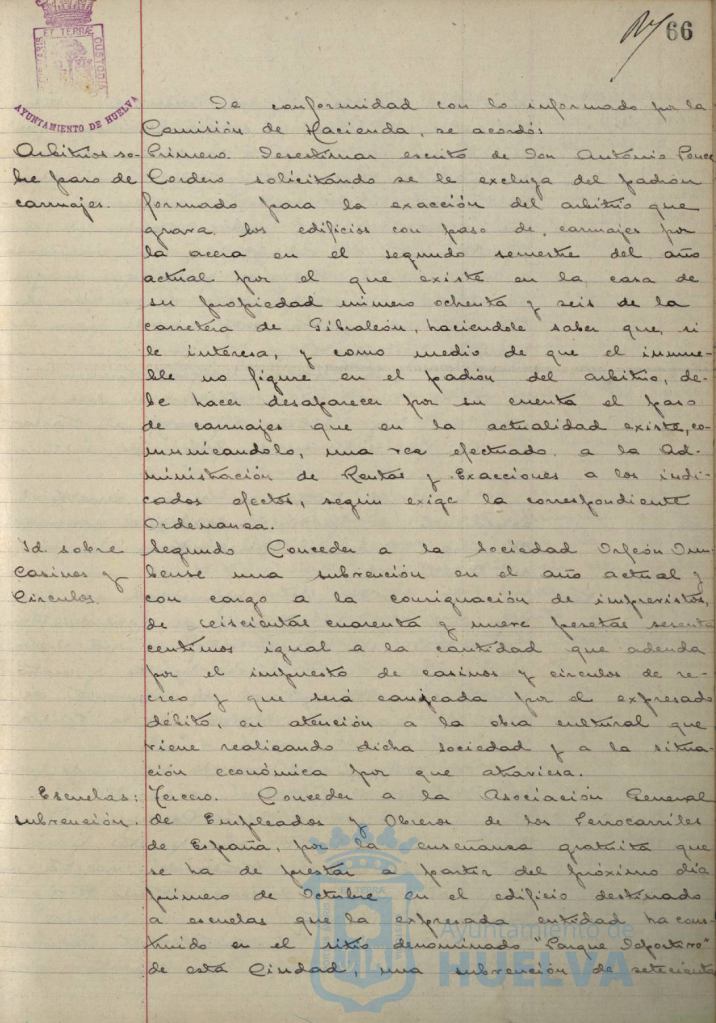 66
AYUNTAMIENTO DE HUELVA
De conformidad con lo informado por la
Comisión de Hacienda, se acordó:
Arbitrios so-
bre paso de
carruajes.
Primero. Desestimar escrito de Don António Ponce
Cordero solicitando se le excluya del padrón
formado para la exacción del arbitrio que
grava los edificios con paso de carruajes por
la acera en el segundo semestre del año
actual por el que existe en la casa de
su propiedad número ochenta y seis de la
carretera de Gibraleón, haciendole saber que, si
le interesa, y como medio de que el inmue-
ble no figure en el padrón del arbitrio, de-
be hacer desaparecer por su cuenta el paso
de carruajes que en la actualidad existe, co-
municandolo, una vez efectuado a la Ad-
ministración de Rentas y Exacciones a los indi-
cados efectos, según exige la correspondiente
Ordenanza.
Id. sobre
Casinos y
Circulos.
Segundo Conceder a la Sociedad Orfeón Onu-
bense una subvención en el año actual y
con cargo a la consignación de imprevistos,
de seiscientas cuarenta y nueve pesetas sesenta
centimos igual a la cantidad que adeuda
por el impuesto de casinos y circulos de re-
creo y que será canjeada por el expresado
débito, en atención a la obra cultural que
viene realizando dicha sociedad y a la situa-
ción económica por que atraviesa.
Escuelas:
subvención.
Tercero. Conceder a la Asociación General
de Empleados y Obreros de los Ferrocarriles
de España, por la enseñanza gratuita que
se ha de prestar a partir del próximo día
primero de Octubre en el edificio destinado
a escuelas que la expresada entidad ha cons-
truido en el sitio denominado "Parque Deportivo"
de esta Ciudad, una subvención de setecientas
Ayuntamiento de
HUELVA